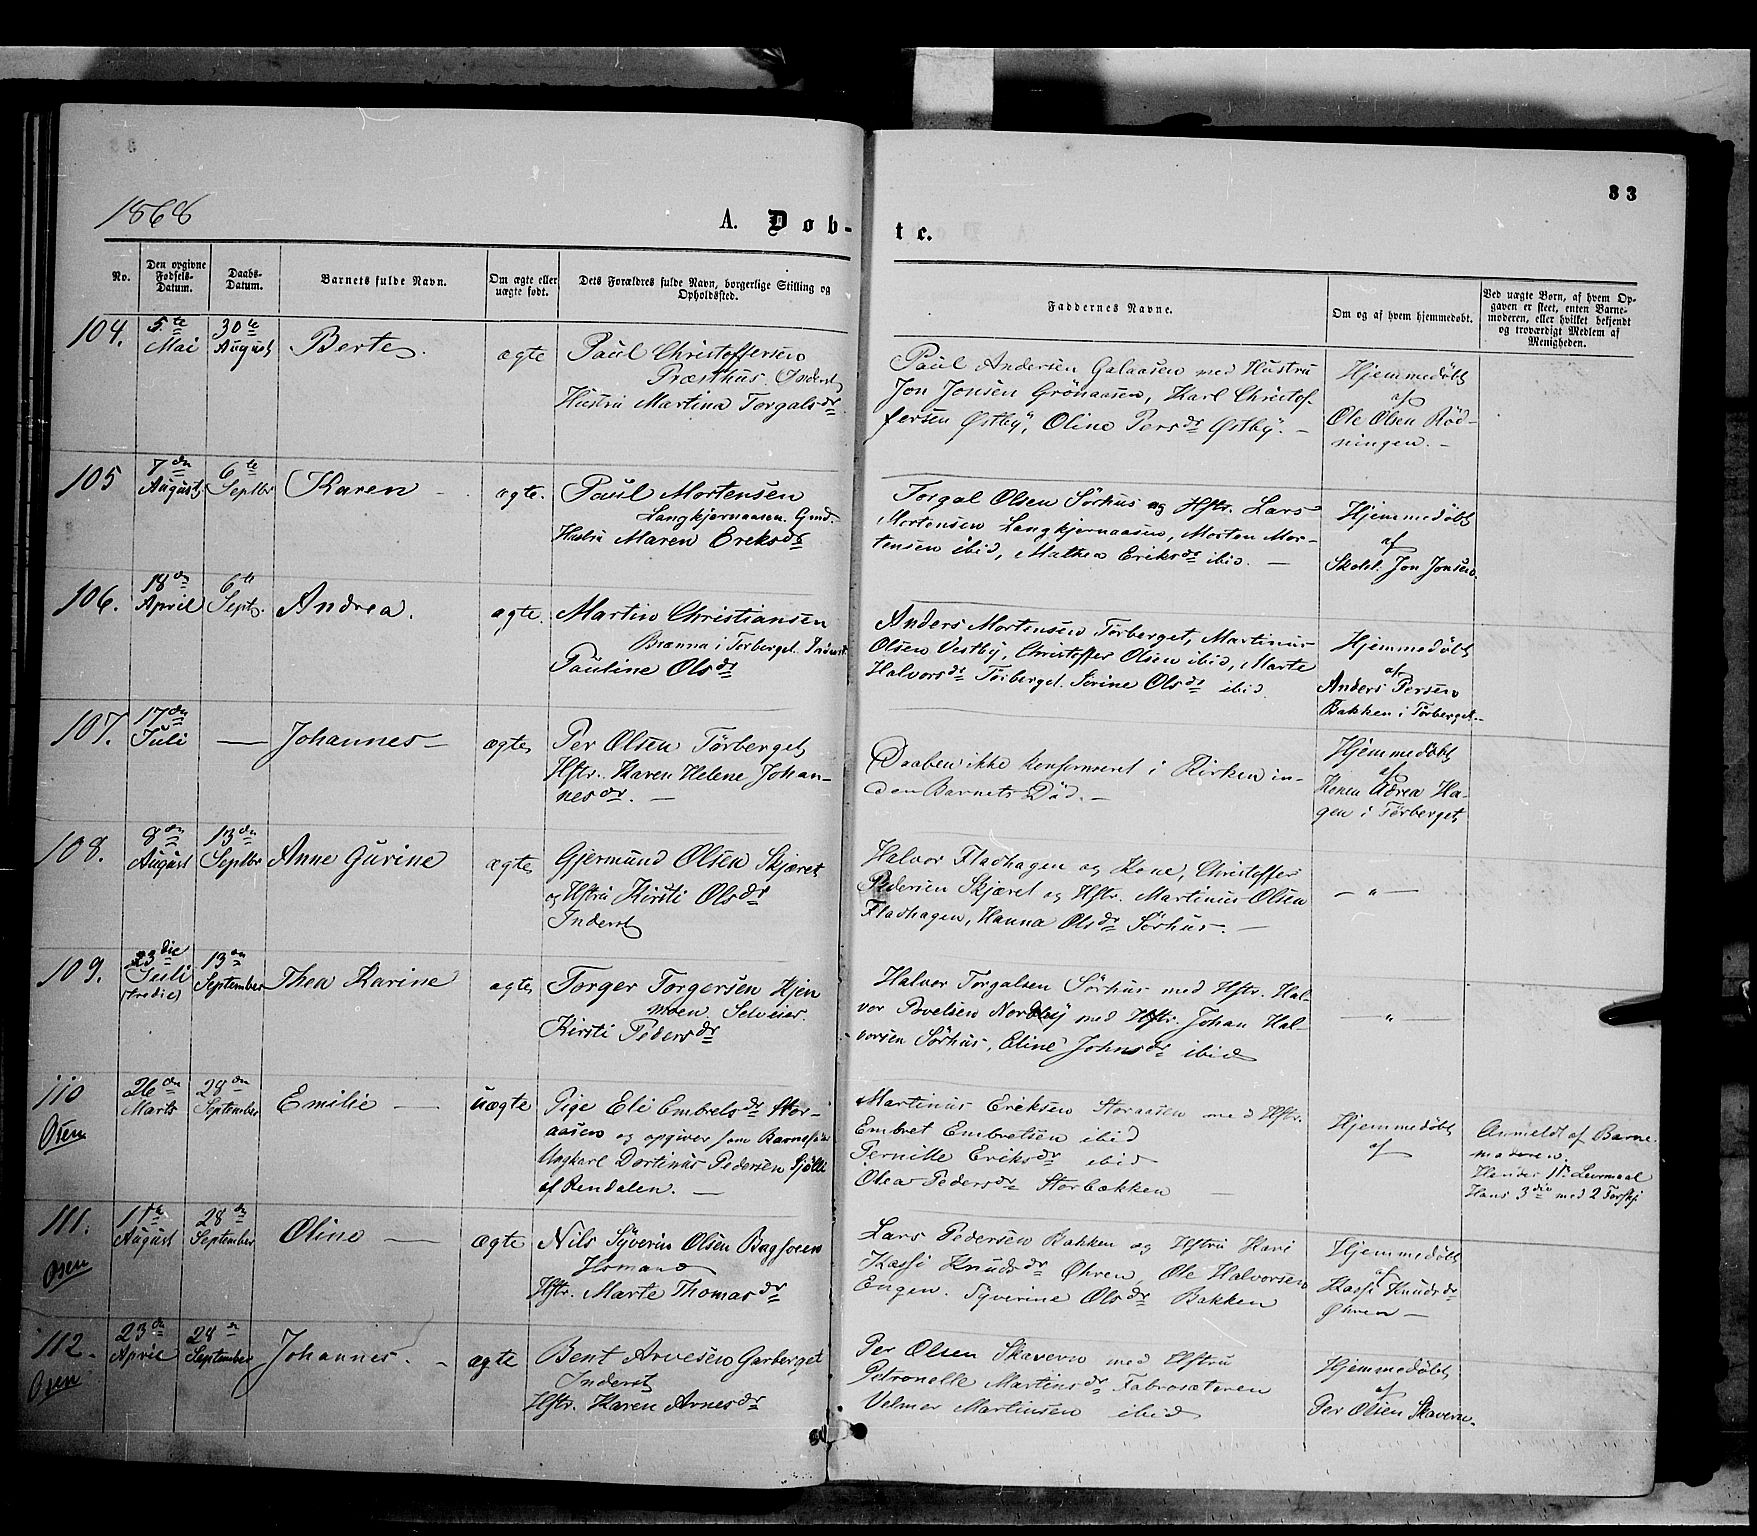 1868
A. Døb-
te.
83
No.
Den opgivne Fødsels-Datum.
Daabs-Datum.
Barnets fulde Navn.
Om ægte eller uægte født.
Dets Forældres fulde Navn, borgerlige Stilling og Opholdssted.
Faddernes Navne.
Om og af hvem hjemmedøbt.
Ved uægte Børn, af hvem Op-
gaven er skeet, enten Barne-
moderen, eller hvilket bekjendt
og troværdigt Medlem af
Menigheden.
104.
5te Mai
30te August
Berte
ægte
Paul Christoffersen
Præsthus. Inderst
Hustru Martina Torgalsdr
Paul Andersen Galaasen med Hustru
Jon Jonsen Grönaasen, Karl Christof-
fersen Østby, Oline Persdr Østby. —
Hjemmedøbt
af
Ole Olsen Rød-
ningen. —
105
7de August
6te Septbr
Karen
ægte.
Paul Mortensen
Langkjernaasen. Gmd.
Hustru Maren Eriksdr
Torgal Olsen Sørhus og Hstr. Lars
Mortensen Langkjernaasen, Morten Mor-
tensen ibid, Mathea Eriksdr ibid. —
Hjemmedøbt
af
Skolel. Jon Jonsen.
106.
18de April
6te Sept.
Andrea.
ægte.
Martin Christiansen
Brænna i Törberget. Inderst
Pauline Olsdr
Anders Mortensen Törberget, Martinus
Olsen Vestby, Christoffer Olsen ibid, Marte
Halvorsdr Törberget. Sörine Olsdr ibid.
Hjemmedøbt
af
Anders Persen
Bakken i Törberget.
107.
17de Juli
—
Johannes —
ægte
Per Olsen Törberget
Hstr. Karen Helene Johan-
nesdr. —
Daaben ikke konfirmeret i Kirken in-
den Barnets Död. —
Hjemmedøbt
af
Konen Adrea Ha-
gen i Törberget
108.
8de August
13de Septbr
Anne Gurine
ægte
Gjermund Olsen Skjæret
og Hstru Kirsti Olsdr
Inderst
Halvor Fladhagen og Kone, Christoffer
Pedersen Skjæret og Hstr. Martinus Olsen
Fladhagen, Hanna Olsdr Sörhus. —
— " —
109.
23die Juli
(tredie)
13de September
Thea Karine
ægte
Torger Torgersen Hjen
moen. Selveier.
Kirsti Pedersdr
Halvor Torgalsen Sörhus med Hstr. Hal-
vor Povelsen Nordby med Hstr. Johan Hal-
vorsen Sörhus, Eline Johnsdr ibid
— " —
110
Osen
26de Marts
28de September
Emilie —
uægte
Pige Eli Embretsdr Stor-
aasen og opgiver som Barnefader
Ungkarl Dortinus Pedersen Sjölli
af Rendalen. —
Martinus Eriksen Storaasen med Hstr.
Embret Embretsen ibid
Pernille Eriksdr ibid
Olea Pedersdr Storbækken —
Hjemmedøbt
af
Anmeldt af Barne-
moderen.
Hendes 1ste Leiermaal
Hans 3die med 2 Forskj.
111.
Osen
1ste August
28de September
Oline —
ægte
Nils Syverin Olsen Bagforen
Hsmand
Hstr. Marte Thomasdr
Lars Pedersen Bakken og Hstru Kari
Kassi Knudsdr Øhren, Ole Halvorsen
Engen. Syverine Olsdr Bakken
Hjemmedøbt
af
Kassi Knudsdr
Øhren —
112.
Osen
23de April
28de September
Johannes. —
ægte
Bent Arnesen Garberget
Inderst
Hstr. Karen Arnesdr
Per Olsen Skavern med Hstru
Petronelle Martinsdr Fabrosæteren
Velmer Martinsen ibid
Hjemmedøbt
af
Per Olsen Skavern.